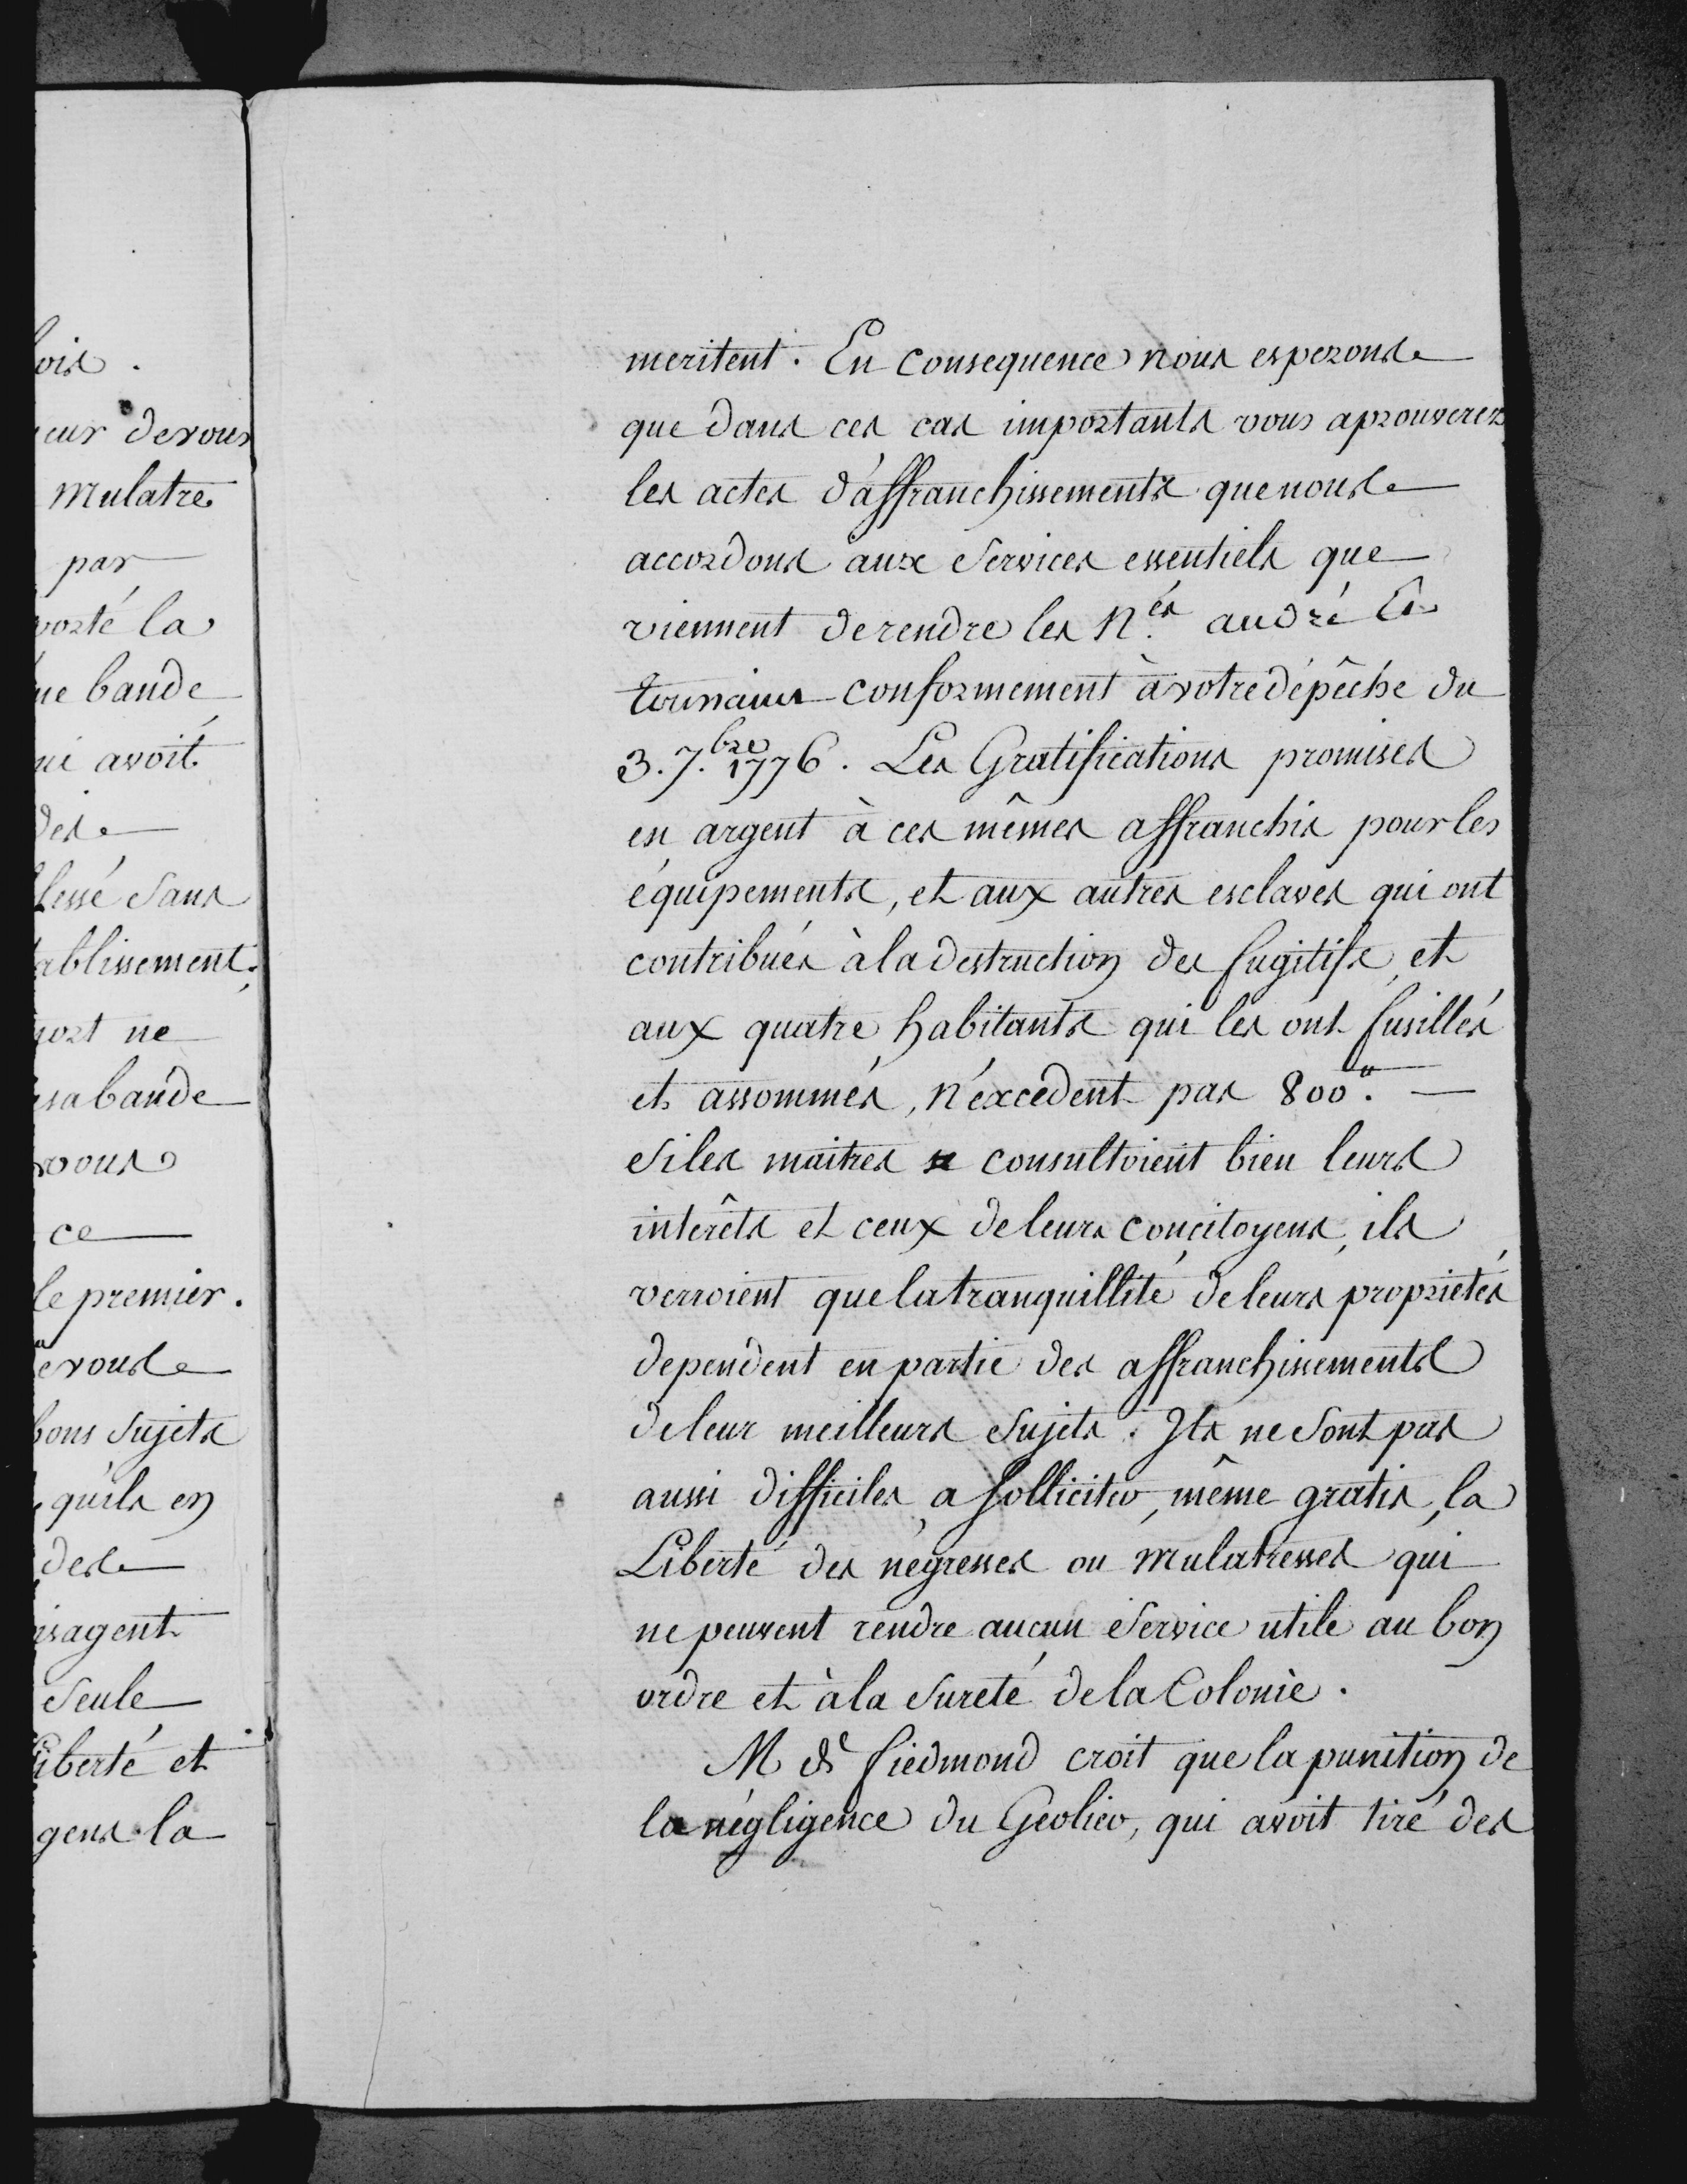 ois.
eur devous
mulatre
par
porté la
ne bande
ui avoit
des
blessé sans
ablissement;
port ne
sa bande
vous
ce
le premier.
evous
bons sujets
qu'ils en
des
isagent
seule
liberté et
gens la
meritent. En consequence nous esperons
que dans ces cas importants vous aprouverez
les actes d'affranchissements que nous
accordons aux services essentiels que
viennent de rendre les N.és andré Et
conformement à votre dépêche du
3. 7.bre 1776. Les Gratifications promises
en argent à ces mêmes affranchis pour les
équipements, et aux autres esclaves qui ont
contribués à la destruction des fugitifs, et
aux quatre habitants qui les ont fusillés
et assommés, n'éxcédent pas 800".
si les maitres consultoient bien leurs
intérêts et ceux de leurs concitoyens, ils
verroient que la tranquillité de leurs proprietés
dependent en partie des affranchissements
de leur meilleurs sujets. Ils ne sont pas
aussi difficiles a solliciter, même gratis, la
Liberté des négresses ou mulatresses qui
ne peuvent rendre aucun service utile au bon
ordre et à la sureté de la Colonie.
M de fiedmond croit que la punition de
la négligence du Geolier, qui avoit tiré des